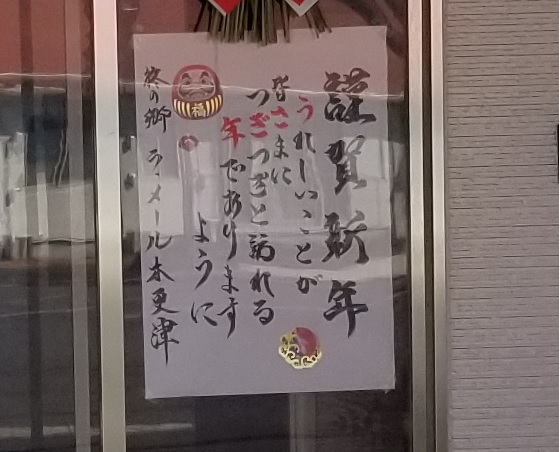 謹賀新年
うれしいことが
皆さまに
つぎつぎと訪れる
年でありますように
福
柊の郷 ラ・メール木更津